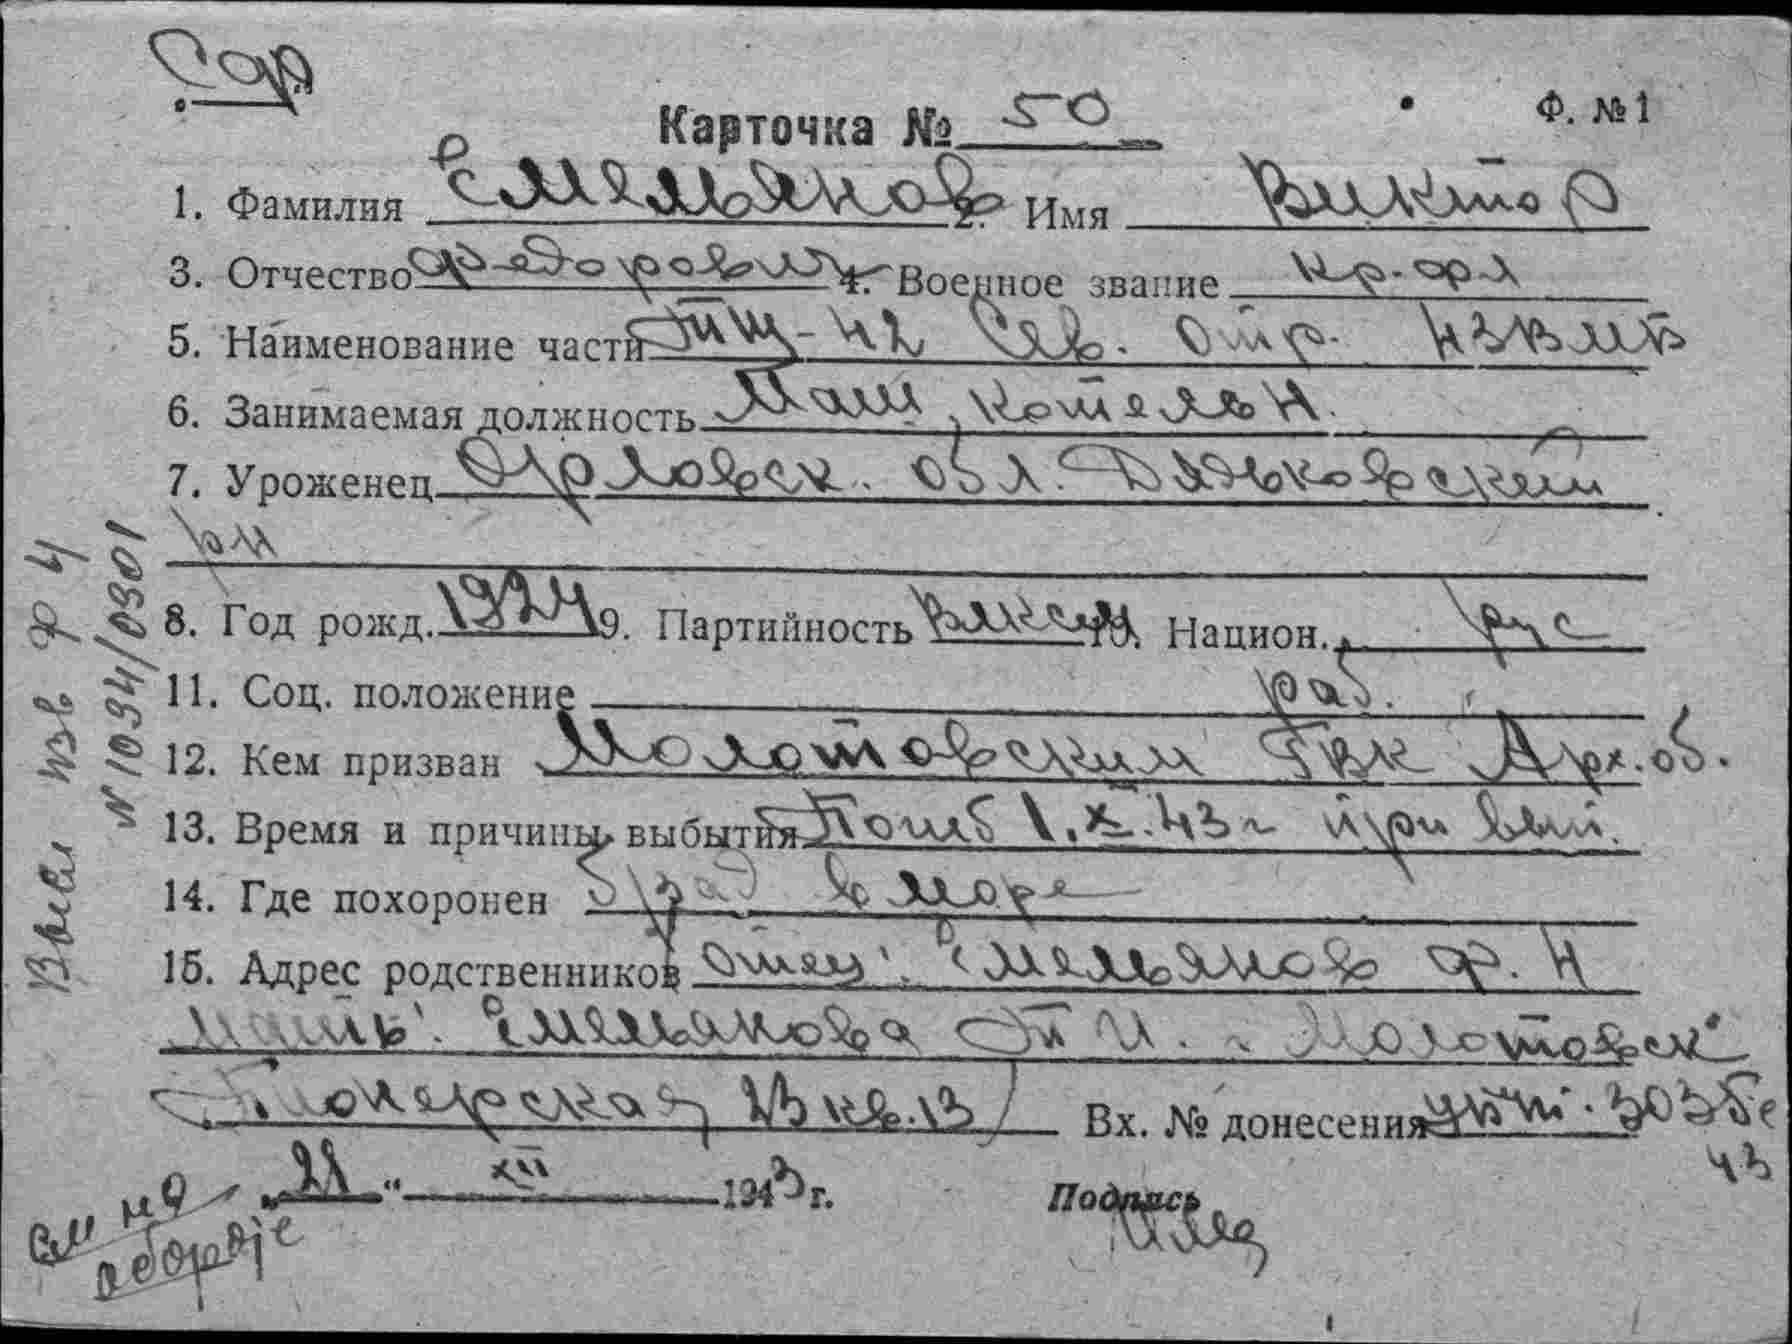 Карточка № 50 Ф. №1
1. Фамилия Емельянов 2. Имя Виктор
3. Отчество Федорович 4. Военное звание кр-фл
5. Наименование части
6. Занимаемая должность Маш. котельн.
7. Уроженец Орловск. обл. Дядьковский
р-н
8. Год рожд. 1924 9. Партийность влксм 10. Национ. рус
11. Соц. положение раб.
12. Кем призван Молотовским ГВК Арх. об.
13. Время и причины выбытия Погиб 1.XII.43 г при вып.
14. Где похоронен в море
15. Адрес родственников отец: Емельянов Ф. И
мать: Емельянова Молотовск
Пионерская 13 кв. 13 Вх. № донесения
XII 1943 г. Подпись
см на обороте